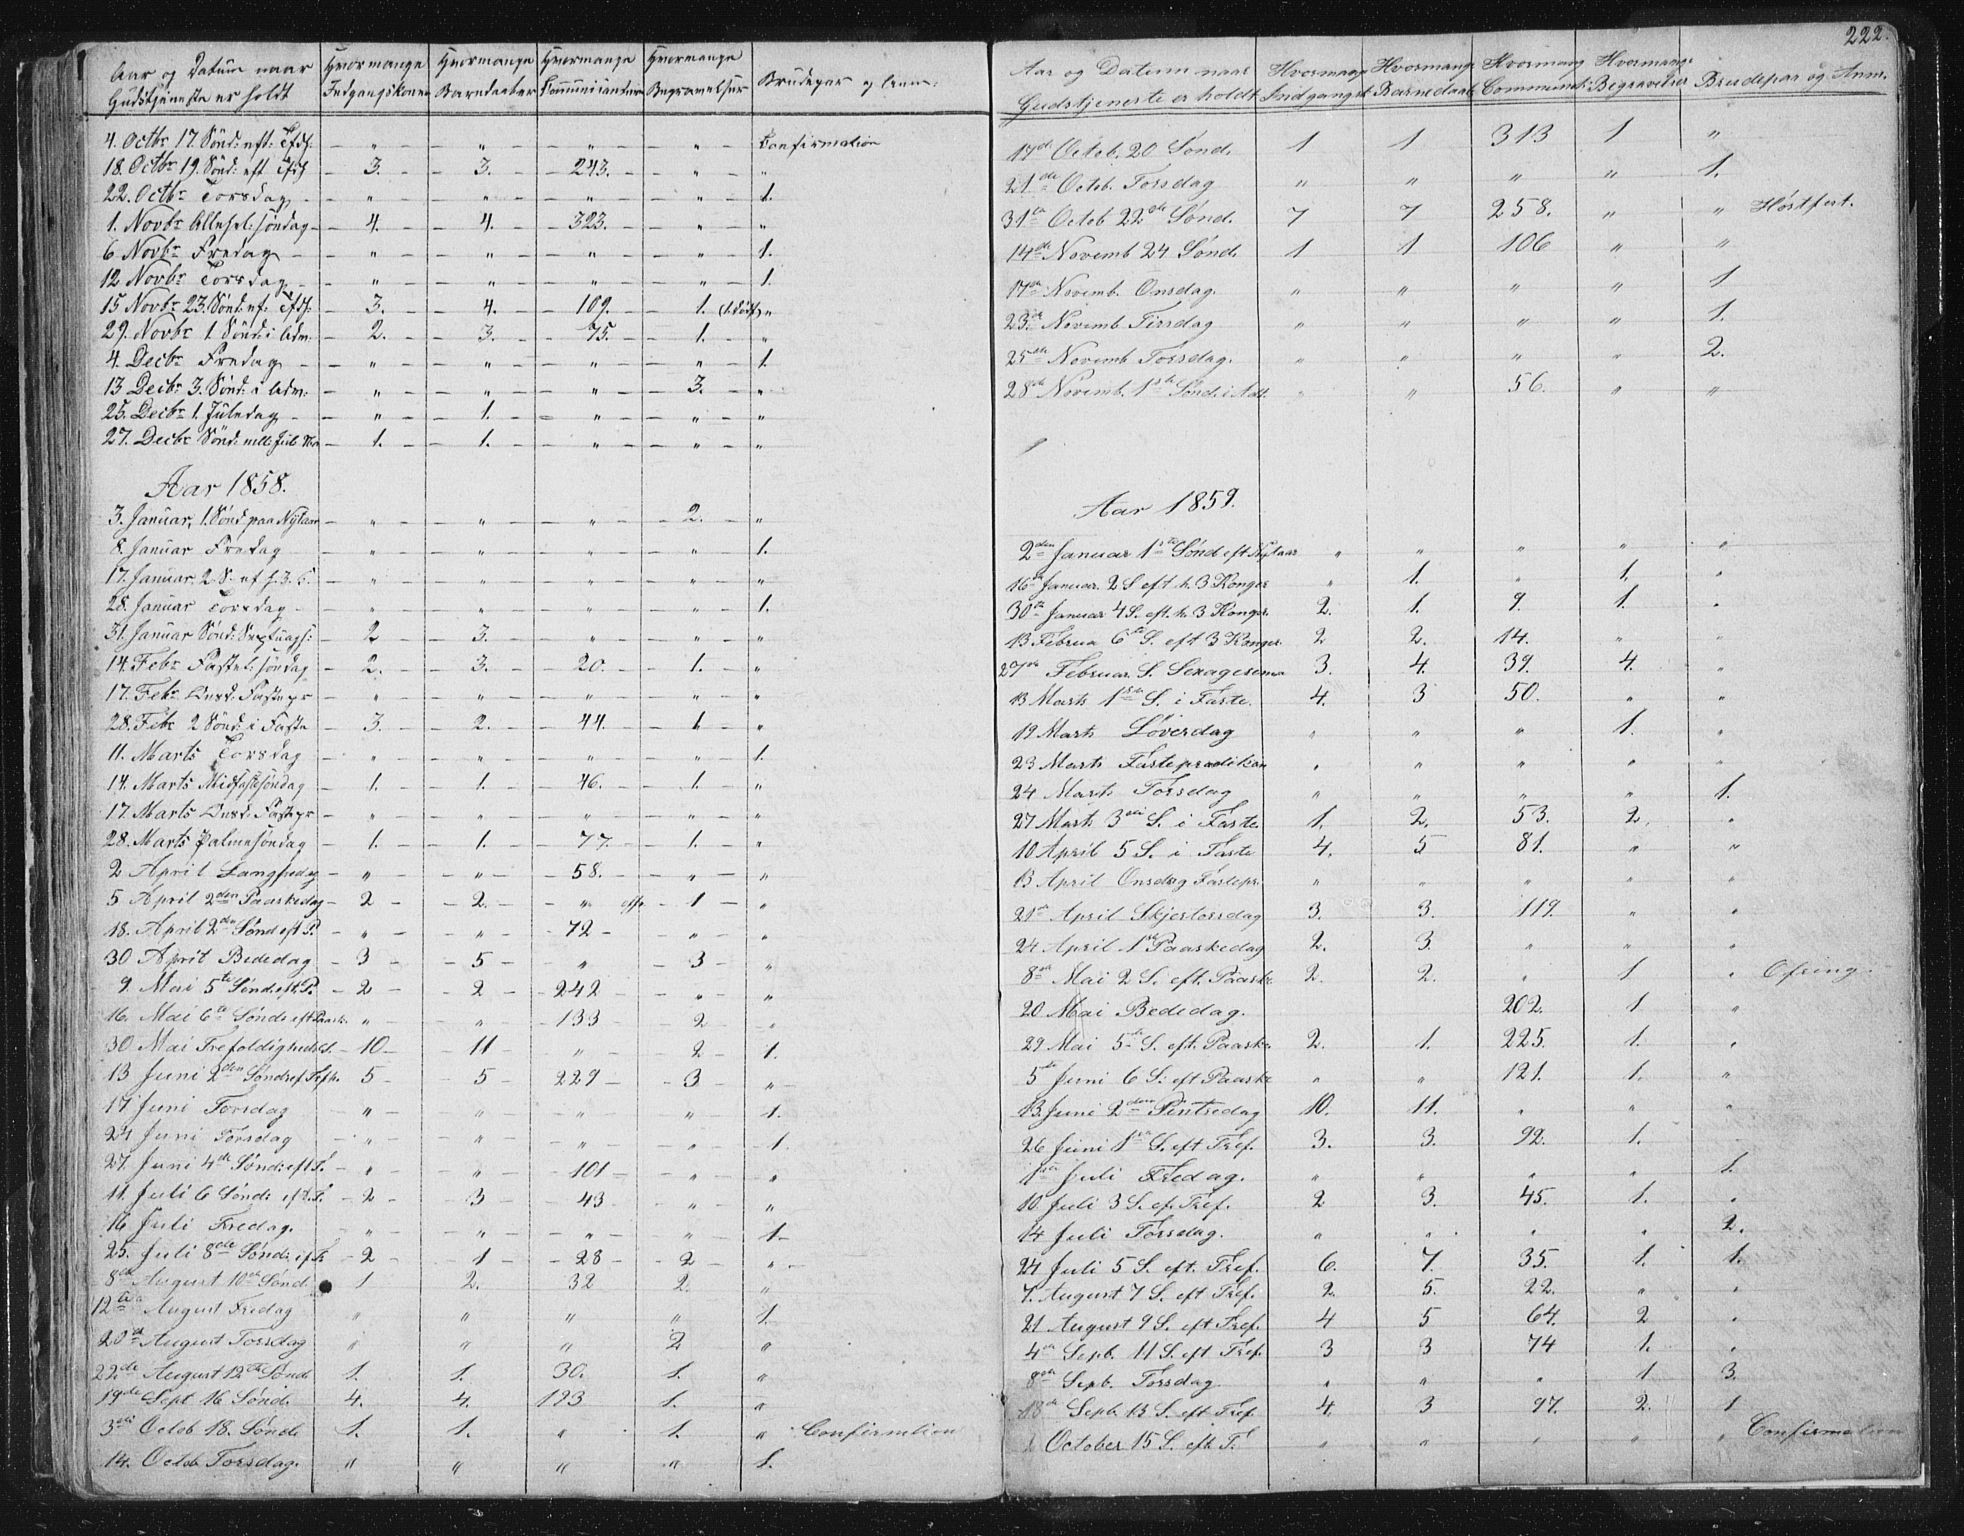 Aar og Datum naar Gudstjeneste er holdt | Hvormange Indgangskoner | Hvormange Barnedaaber | Hvormange Communicanter | Hvormange Begravelser | Brudepar og Anm:
4. Octbr 17. Sönd: eft: Trfdh: - " - " - " - " - Confirmation
18. Octbr 19. Sönd: eft Trfdh - 3. - 3. - 243. - " - "
22. Octbr Torsdag - " - " - " - " - 1.
1. Novbr Allehel: söndag - 4. - 4. - 323. - " - "
6 Novbr Fredag - " - " - " - " - 1.
12 Novbr Torsdag - " - " - " - " - 1.
15 Novbr 23. Sönd: ef: Trfdh: - 3. - 4. - 109. - 1. "
29. Novbr 1. Sönd: i Adm. - 2. - 3. - 75. - 1. - "
4. Decbr Fredag - " - " - " - " - 1.
13 Decbr 3. Sönd: i Adm: - " - " - " - 3. - "
25. Decbr 1. Juledag - " - 1. - " - " - "
27. Decbr Sönd: mell: Jul - 1. - 1. - " - " - "
Aar 1858.
3. Januar, 1. Sönd paa Nytaar - " - " - " - 2. - "
8. Januar Fredag - " - " - " - " - 1.
17. Januar. 2 S. ef h. 3. - " - " - " - " - "
28. Januar Torsdag - " - " - " - " - 1.
31. Januar Sönd: Septuags: - 2 - 3. - " - " - "
14. Febr Fastel: söndag - 2. - 3. - 20. - 1. - "
17. Febr Onsd: Fastepr - " - " - " - " - "
28. Febr 2 Sönd: i Faste - 3. - 2. - 44. - 1 - "
11. Marts Torsdag - " - " - " - " - 1.
14. Marts Midfastesöndag - 1. - 1. - 46. - 1. - "
17. Marts Onsd: Fastepr - " - " - " - " - "
28. Marts Palmesöndag - 1. - 1. - 77. - 1. - "
2 April Langfredag - " - " - 58. - " - "
5 April 2den Paaskedag - 2 - 2. - " - 1 - "
18. April 2den Sönd eft P. - " - " - 72 - " - "
30 April Bededag - 3 - 5 - " - 3 - "
9. Mai 5te Sönd eft P. - 2 - 2 - 242 - " - "
16. Mai 6te Sönd: eft Paask. - " - " - 133 - 2 - "
30 Mai Trefoldigheds. - 10 - 11 - " - 2 - 1.
13 Juni 2den Sönd: ef Trefh. - 5 - 5 - 229 - 3 - "
17 Juni Torsdag - " - " - " - " - 1.
24 Juni Torsdag - " - " - " - " - 1.
27. Juni 4de Sönd: eft T. - " - " - 101 - " - "
11. Juli 6 Sönd: eft T. - 2 - 3 - 43 - " - "
16 Juli Fredag. - " - " - " - " - 1
25. Juli 8de Sönd: ef Tr - 2 - 1 - 28 - 2 - "
8de August 10de Sönd: 1 2. 32 2. "
12te August Fredag " " " " 1.
20de August Torsdag " " " 2 "
22de August 12te Sönd 1. 1. 30. 1. "
19de Sept 16 Sönd. 4. 4. 123 1. "
3die Octob 18. Sönd: 1. 1. " 1. " Confirmation
14. Octob Torsdag. " " " " 1.
222.
Aar og Datum naar Gudstjeneste er holdt | Hvormange Indgangsk | Hvormange Barnedaab | Hvormang Communik: | Hvormange Begravelser | Brudepar og Anm.
17de Octob. 20 Sönd. 1 1 313 1 "
21de Octob. Torsdag " " " " 1.
31te Octob 22de Sönd. 7 7 258. " " Høstfest.
14de Novemb 24 Sönd. 1 1 106 " "
17de Novemb. Onsdag. " " " " 1
23de Novemb Tirsdag " " " " 1.
25de Novemb Torsdag. " " " " 2.
28de Novemb. 1ste Sönd. i Adt. " " 56. " "
Aar 1859.
2den Januar 1ste Sönd eft Nytaar " " " " "
16de Januar. 2 S eft h. 3 Konger " 1. " 1. "
30te Januar 4 S. eft. h. 3 Konger. 2. 1. 9. 1. "
13 Februa 6te S. eft 3 Konger. 2 2. 14. " "
27de Februar. S. Sexagesema 3. 4. 39. 4. "
13 Marts 1ste S. i Faste. 4. 3 50. " "
19 Marts Løverdag " " " 1. "
23 Marts Fasteprædiken " " " " "
24 Marts Torsdag " " " " 1.
27 Marts 3die S. i Faste. 1. 2. 53. 2. "
10 April 5 S. i Faste 4. 5 81. " "
13 April Onsdag Fastepr. " " " " "
21de April Skjertorsdag 3. 3. 119. " "
24 April 1ste Paaskedag 2. 3 " " "
8de Mai 2 S. eft. Paaske 2. 2. " 1 " Ofring.
20 Mai Bededag. 202. 1 "
29 Mai 5de S. eft. Paaske 2. 1. 225. 1. "
5te Juni 6 S: eft Paaske " " 121. 1. "
13. Juni 2den Pintsedag 10. 11. " " "
26 Juni 1ste S. eft Tref. 3. 3. 92. 1. "
1ste Juli Fredag. " " " " 1.
10 Juli 3 S. ef. Tref. 2 3. 45. 1. "
14 Juli Torsdag. " " " " 2.
24 Juli 5 S. eft. Tref. 6. 7. 35. 1. 1.
7. August 7 S. eft Tref. 2. 5. 22. " "
21 August 9 S. eft Tref. 4 5 64. 2 "
4de Sepb. 11 S. eft Tref. 3 3 74 1. "
8de Sepb. Torsdag " " " 1 3.
18de Sepb 13 S. eft Tref 4. 3 97. 2. 1
October 15 S. eft T. " " " " " Confirmation